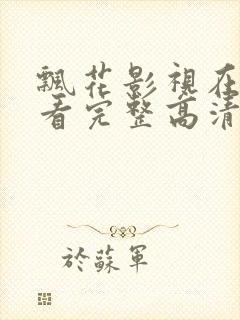 飄花影視在
看完整高清
於蘇軍